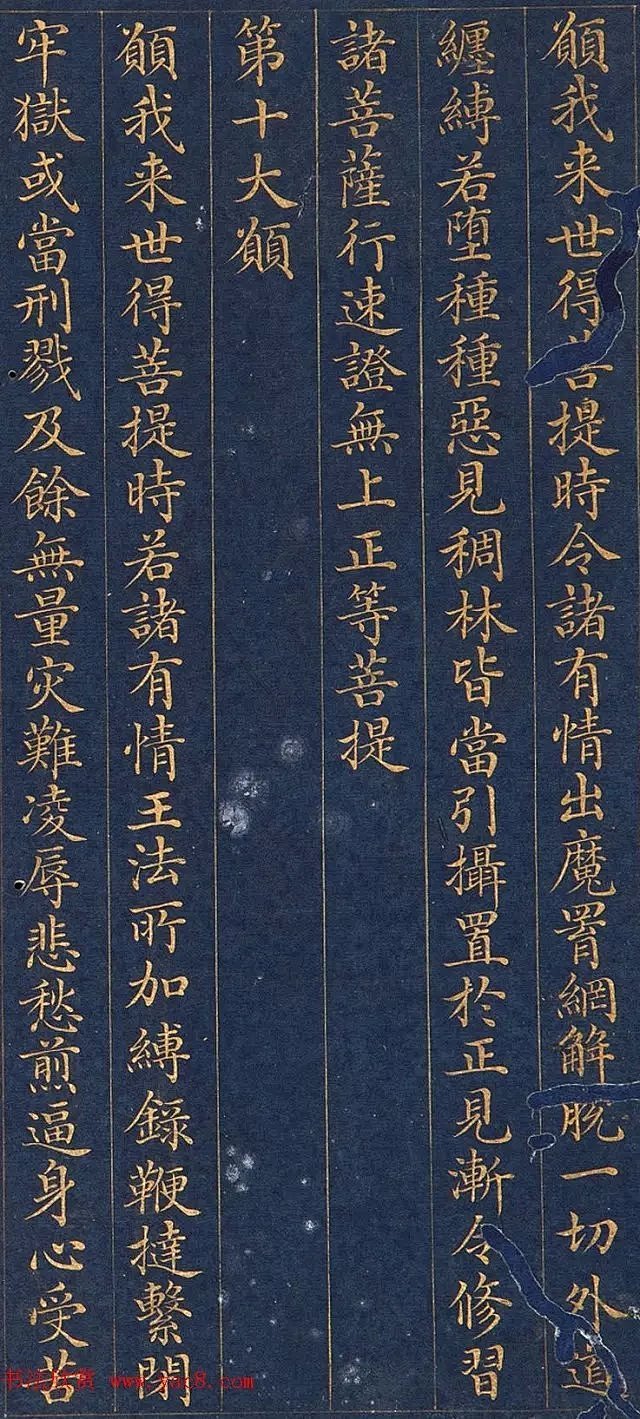 願我来世得菩提時令諸有情出魔罥網解脫一切外道
纏縛若堕種種惡見稠林皆當引攝置於正見漸令修習
諸菩薩行速證無上正等菩提
第十大願
願我来世得菩提時若諸有情王法所加縛錄鞭撻繫閉
牢獄或當刑戮及餘無量灾難凌辱悲愁煎逼身心受苦
www.yac8.com